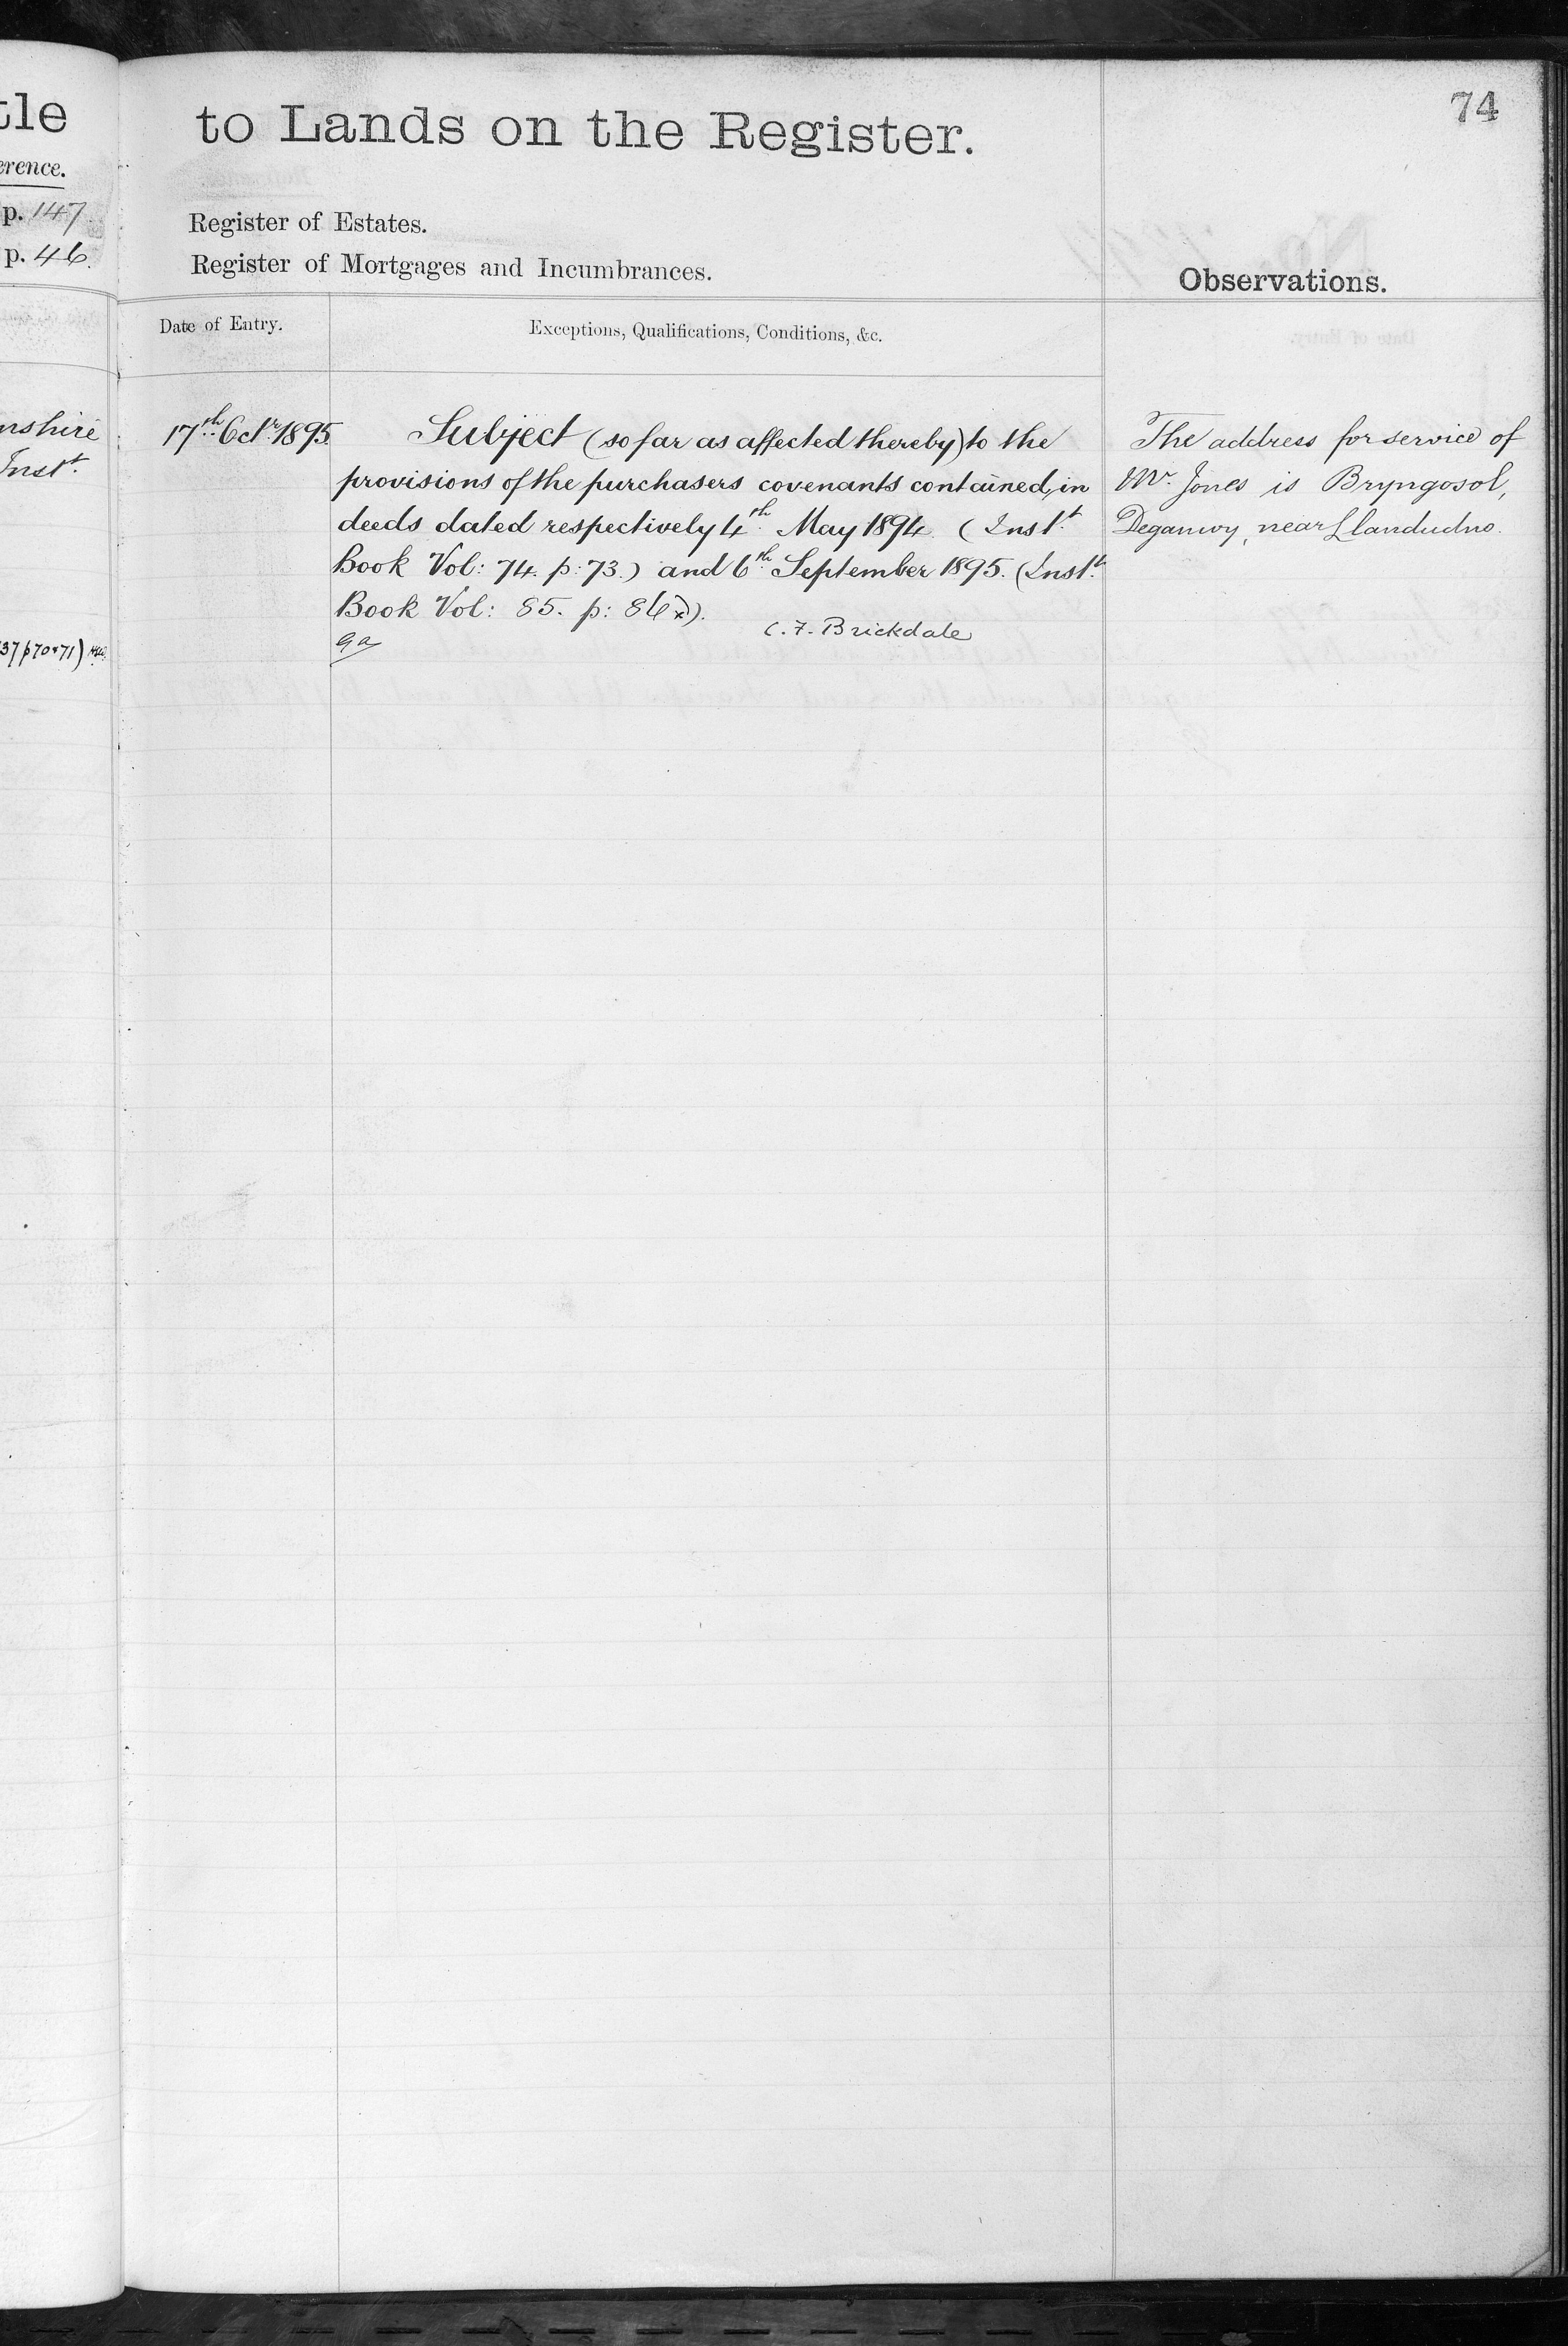 74
to Lands on the Register.
Register of Estates.
Register of Mortgages and Incumbrances.
Observations.
Date of Entry.
Exceptions, Qualifications, Conditions, &c.
17th Octr 1895
Subject (so far as affected thereby) to the
provisions of the purchasers covenants contained in
deeds dated respectively 4th May 1894 (Instt
Book Vol: 74. p: 73.) and 6th September 1895. (Instt
Book Vol: 85. p: 86
C. F. Brickdale
The address for service of
Mr. Jones is Bryngosol,
Deganwy, near Llandudno.
tle
erence.
p. 147
p. 46.
nshire
Instt
37 p 70 & 71)